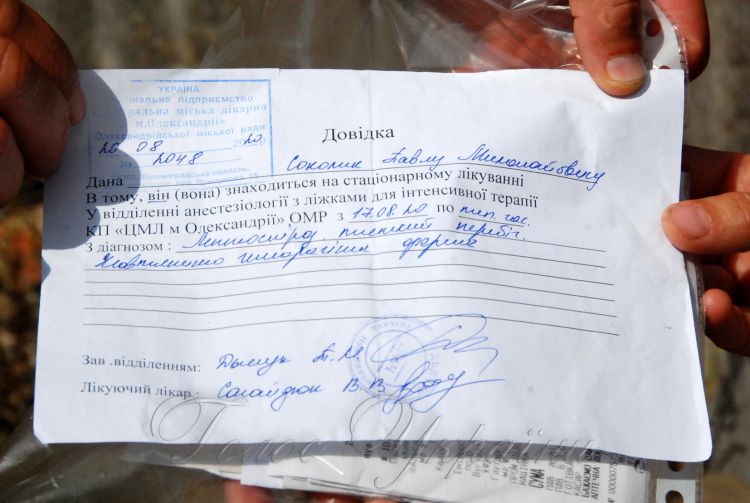 УКРАЇНА
Комунальне підприємство
«Центральна міська лікарня
м.Олександрії»
Олександрійської міської ради
20 08 2020
2048
Кіровоградська область,
Довідка
Дана Соколик Павлу Миколайовичу
В тому, він (вона) знаходиться на стаціонарному лікуванні
У відділенні анестезіології з ліжками для інтенсивної терапії
КП «ЦМЛ м Олександрії» ОМР з 17.08.20 по тип. час.
З діагнозом : Лептоспіроз, тяжкий перебіг.
Жовтянично геморагічна форма
Зав .відділенням: Т.М
Лікуючий лікар : Согайдюк В.В
Голос України
СУМА